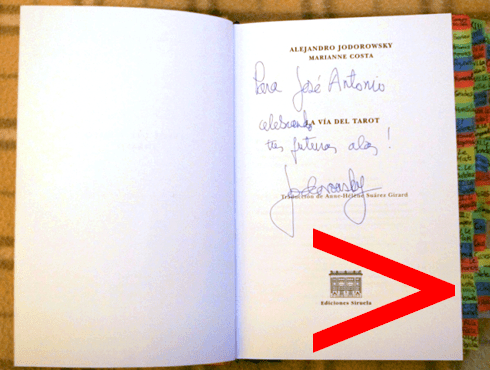 ALEJANDRO JODOROWSKY
MARIANNE COSTA
Para José Antonio
LA VÍA DEL TAROT
celebrando
tus futuras alas!
Jodorowsky
Traducción de Anne-Hélène Suárez Girard
Ediciones Siruela